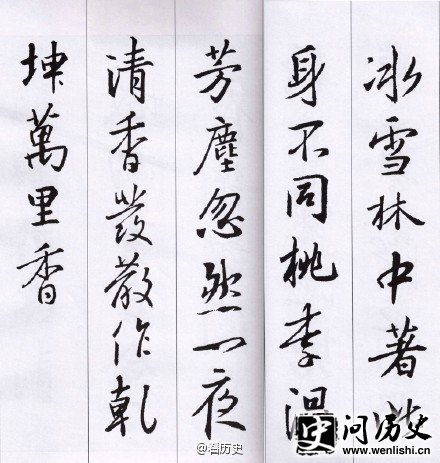 冰雪林中著此
身不同桃李混
芳塵忽然一夜
清香發散作乾
坤萬里香
@看历史
问历史
www.wenlishi.com